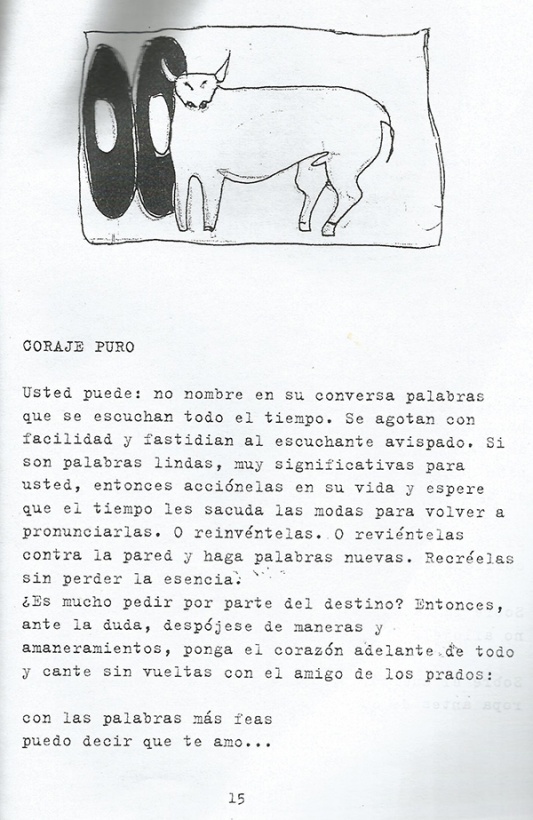 CORAJE PURO
Usted puede: no nombre en su conversa palabras
que se escuchan todo el tiempo. Se agotan con
facilidad y fastidian al escuchante avispado. Si
son palabras lindas, muy significativas para
usted, entonces acciónelas en su vida y espere
que el tiempo les sacuda las modas para volver a
pronunciarlas. O reinvéntelas. O reviéntelas
contra la pared y haga palabras nuevas. Recréelas
sin perder la esencia.
¿Es mucho pedir por parte del destino? Entonces,
ante la duda, despójese de maneras y
amaneramientos, ponga el corazón adelante de todo
y cante sin vueltas con el amigo de los prados:
con las palabras más feas
puedo decir que te amo...
15